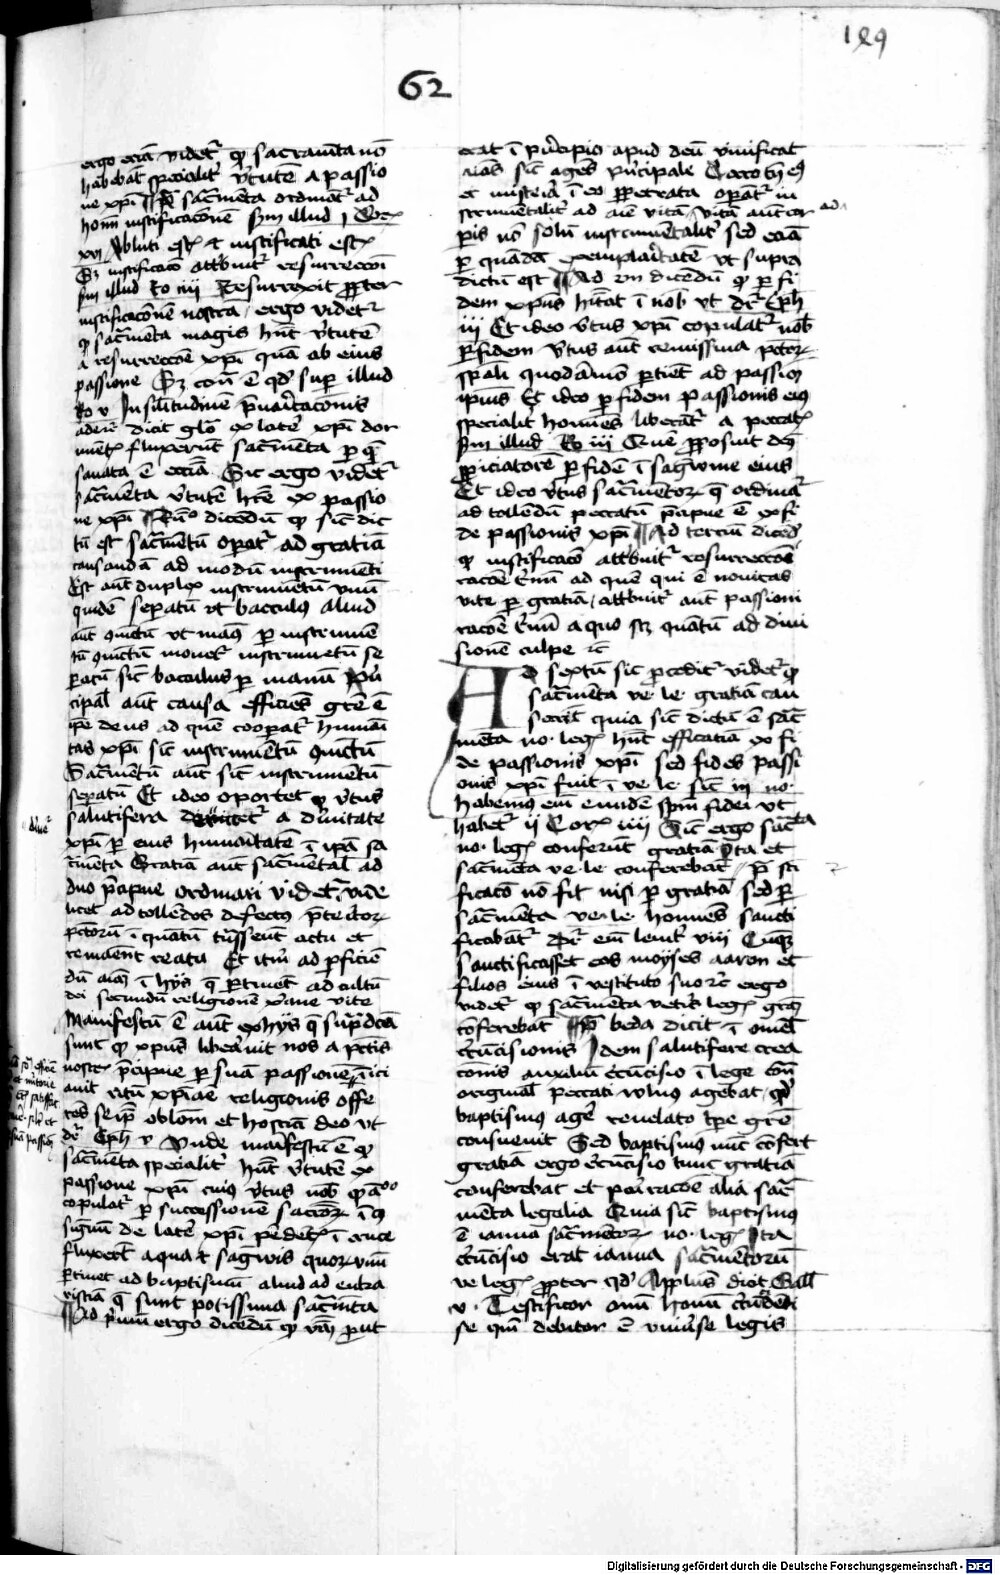 189
62
ergo eciam videtur quod sacramenta non
habebant specialiter virtutem a passio
ne xpi ¶ Pre sacramenta ordinantur ad
hominis iustificacionem Scdm illud 1 Cor
vi Abluti estis et iustificati estis
Sz iustificacio attribuitur resurreccioni
scdm illud Ro iiii Resurrexit propter
iustificacionem nostram ergo videtur
quod sacramenta magis habent virtutem
a resurreccione xpi quam ab eius
passione Sz contra est quod super illud
Ro v In similitudinem prevaricacionis
ade etc dicit glo ex latere xpi dor
mientis fluxerunt sacramenta per que
salvata est ecclesia Sic ergo videtur
sacramenta virtutem habere ex passio
ne xpi ¶ Respondeo dicendum quod sicut dic
tum est sacramentum operatur ad gratiam
causandam ad modum instrumenti
Est autem duplex instrumentum unum
quidem separatum ut bacculus aliud
autem coniunctum ut manus per instrumen
tum coniunctum movetur instrumentum se
paratum sicut baculus per manum Prin
cipalis autem causa efficiens gratie est
ipse deus ad quem comparatur humani
tas xpi sicut instrumentum coniunctum
Sacramentum autem sicut instrumentum
separatum Et ideo oportet quod virtus
salutifera derivetur a divinitate
xpi per eius humanitatem in ipsa sa
cramenta Gratia autem sacramentalis ad
duo precipue ordinari videtur
licet ad tollendos defectus preteritorum
peccatorum in quantum transeunt actu et
remanent reatu Et iterum ad perficien
dum animam in hys que pertinent ad cultum
dei secundum religionem xpiane vite
Manifestum est autem ex hys que supra dicta
sunt quod xpus liberavit nos a peccatis
nostris precipue per suam passionem
avit ritum xpiane religionis offe
rens seipsum oblacionem et hostiam deo ut
dr Eph v Unde manifestum est quod
sacramenta specialiter habent virtutem ex
passione xpi cuius virtus nobis quodammodo
copulatur per susceptionem sacramentorum in cuius
signum de latere xpi pendentis in cruce
fluxerunt aqua et sangwis quorum unum
pertinet ad baptismum aliud ad eukra
ristiam que sunt potissima sacramenta
¶ Ad primum ergo dicendum quod verbum prout
erat in principio apud deum vivificat
animas sicut agens principale Caro tamen eius
et misteria in ea perpetrata operantur in
strumentaliter ad anime vitam vitam autem cor
poris non solum instrumentaliter sed eciam
per quandam exemplaritatem ut supra
dictum est ¶ Ad 2m dicendum quod per fi
dem xpus habitat in nobis ut dr Eph
iii Et ideo virtus xpi copulatur nobis
per fidem virtus autem remissiva peccatorum
speciali quodammodo pertinet ad passionem
ipsius Et ideo per fidem passionis eius
specialiter homines liberantur a peccatis
Scdm illud Ro iii Quem proposuit deus
propiciatorem per fidem in sagwine eius
Et ideo virtus sacramentorum que ordinatur
ad tollendum peccatum precipue est ex fi
de passionis xpi ¶ Ad tercium dicendum
quod iustificacio attribuitur resurreccioni
racione termini ad quem qui est novitas
vite per gratiam attribuitur autem passioni
racione termini a quo scz quantum ad dimi
sionem culpe etc
Ad sextum sic proceditur videtur quod
sacramenta ve le gratiam cau
sarent quia sicut dictum est sacra
menta no leg habent efficaciam ex fi
de passionis xpi sed fides passi
onis xpi fuit in ve le sicut in no
habemus enim eundem spm fidei ut
habetur ii Cor iiii Sicut ergo sacramenta
no leg conferunt gratiam Ita et
sacramenta ve le conferebant Pre sci
ficacio non fit nisi per gratiam sed per
sacramenta ve le homines sancti
ficabantur dr enim levit viii Cumque
sanctificasset eos moyses aaron et
filios eius in vestitu suo etc ergo
videtur quod sacramenta veteris legis gratiam
conferebant ¶ Pre beda dicit in omel
circumcisionis Idem salutifere crea
cionis auxilium circumcisio in lege contra
originalis peccati wlnus agebat quod
baptismus agere revelato tempore gratie
consuevit Sed baptismus nunc confert
gratiam ergo circumcisio tunc gratiam
conferebat et pari racione alia sacra
menta legalia Quia sicut baptismus
est ianua sacramentorum no leg Ita
circumcisio erat ianua sacramentorum
ve leg propter quod Apostolus dicit Gall
v Testificor omni homini circumcidenti
se quoniam debitor est universe legis